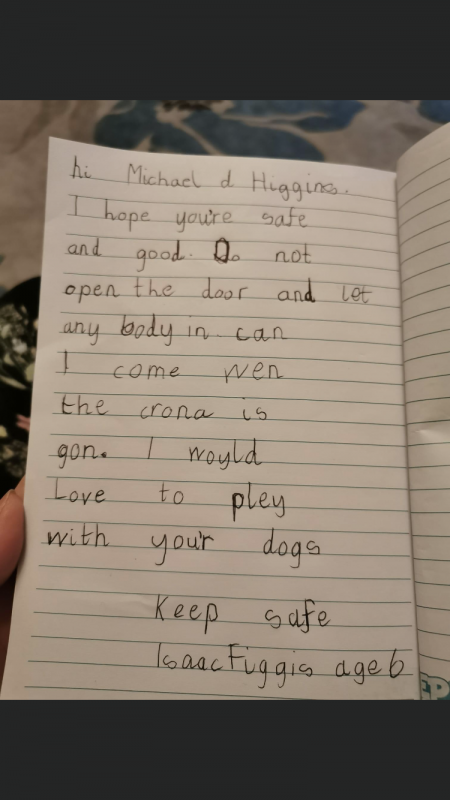 hi Michael d Higgins.
I hope you're safe
and good. Do not
open the door and let
any body in. can
I come wen
the crona is
gon. I woyld
Love to pley
with you'r dogs
Keep safe
Isaac Figgis age 6